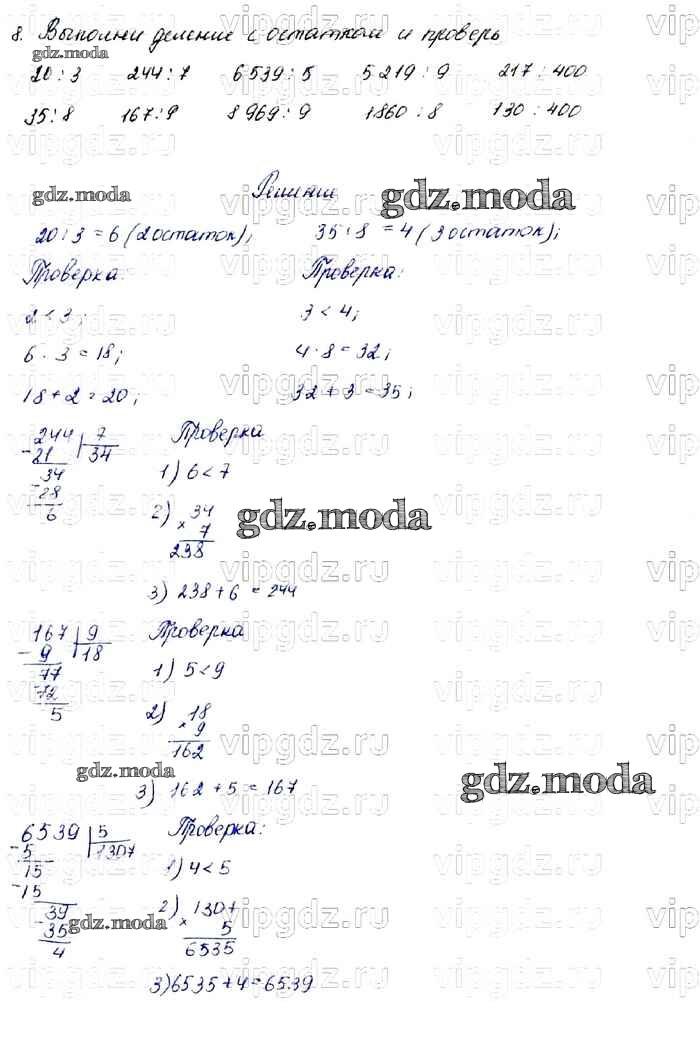 8. Выполни деление с остатком и проверь
20 : 3 244 : 7 6539 : 5 5219 : 9 217 : 400
35 : 8 167 : 9 8969 : 9 1860 : 8 130 : 400
Решение
20 : 3 = 6 (2 остаток); 35 : 8 = 4 (3 остаток);
Проверка: Проверка:
2 < 3; 3 < 4;
6 · 3 = 18; 4 · 8 = 32;
18 + 2 = 20; 32 + 3 = 35;
244 | 7 Проверка
- 21 34 1) 6 < 7
34
- 28 2) 34
6 × 7
238
3) 238 + 6 = 244
167 | 9 Проверка
- 9 18 1) 5 < 9
77
- 72 2) 18
5 × 9
162
3) 162 + 5 = 167
6539 | 5 Проверка:
- 5 1307 1) 4 < 5
15
- 15 2) 1307
39 × 5
- 35 6535
4
3) 6535 + 4 = 6539
gdz.moda
gdz.moda
gdz.moda
gdz.moda
gdz.moda
gdz.moda
gdz.moda
vipgdz.ru